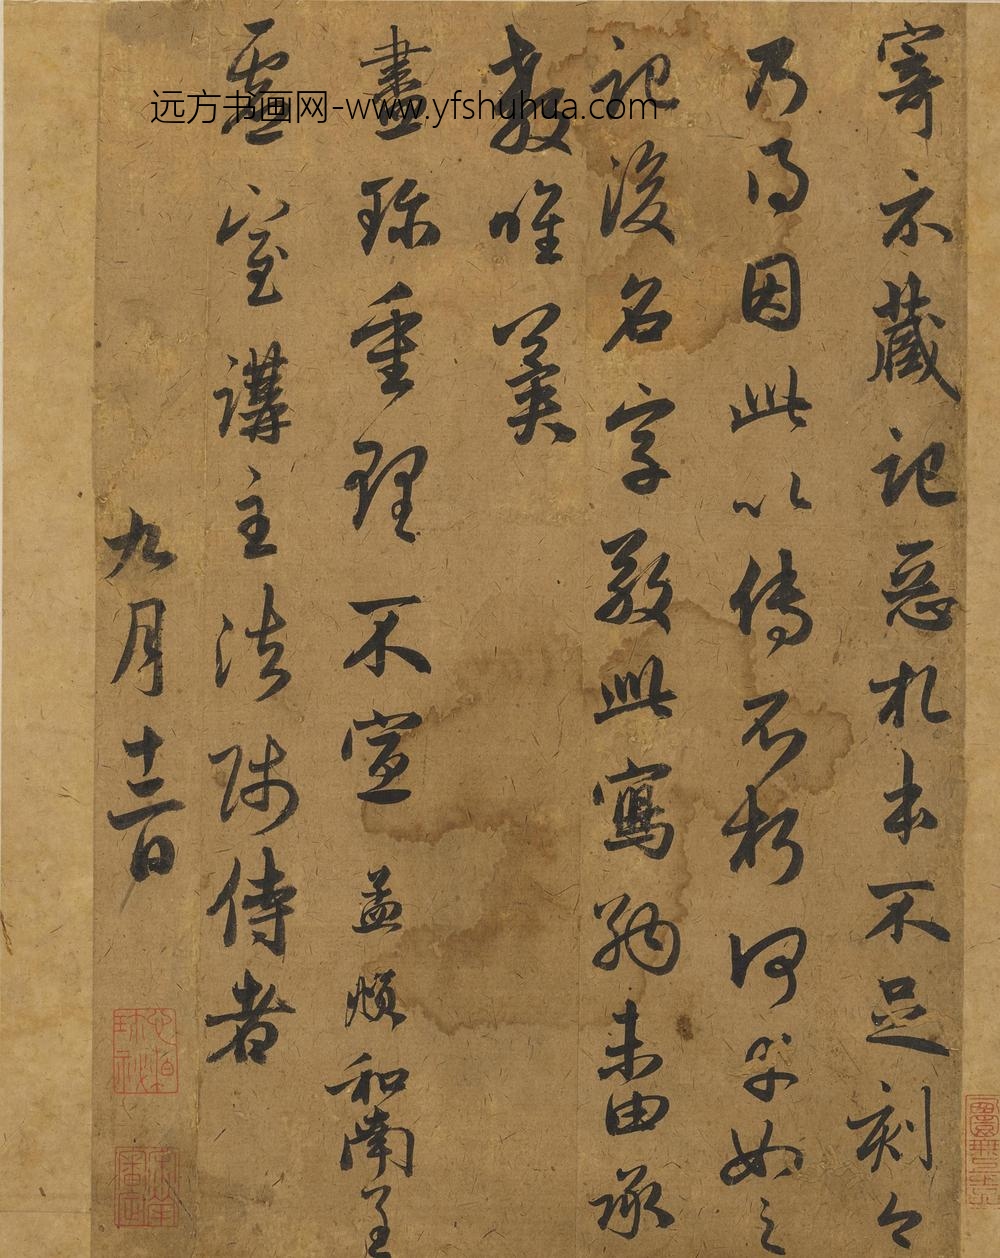 远方书画网-www.yfshuhua.com
寄示藏記惡札本不足刻今
乃得因此以傳不朽何幸如之
記後名字敬此寫納未由承
教唯冀
盡珎重理不宣 孟頫和南手
虚室講主法師侍者
九月十二日